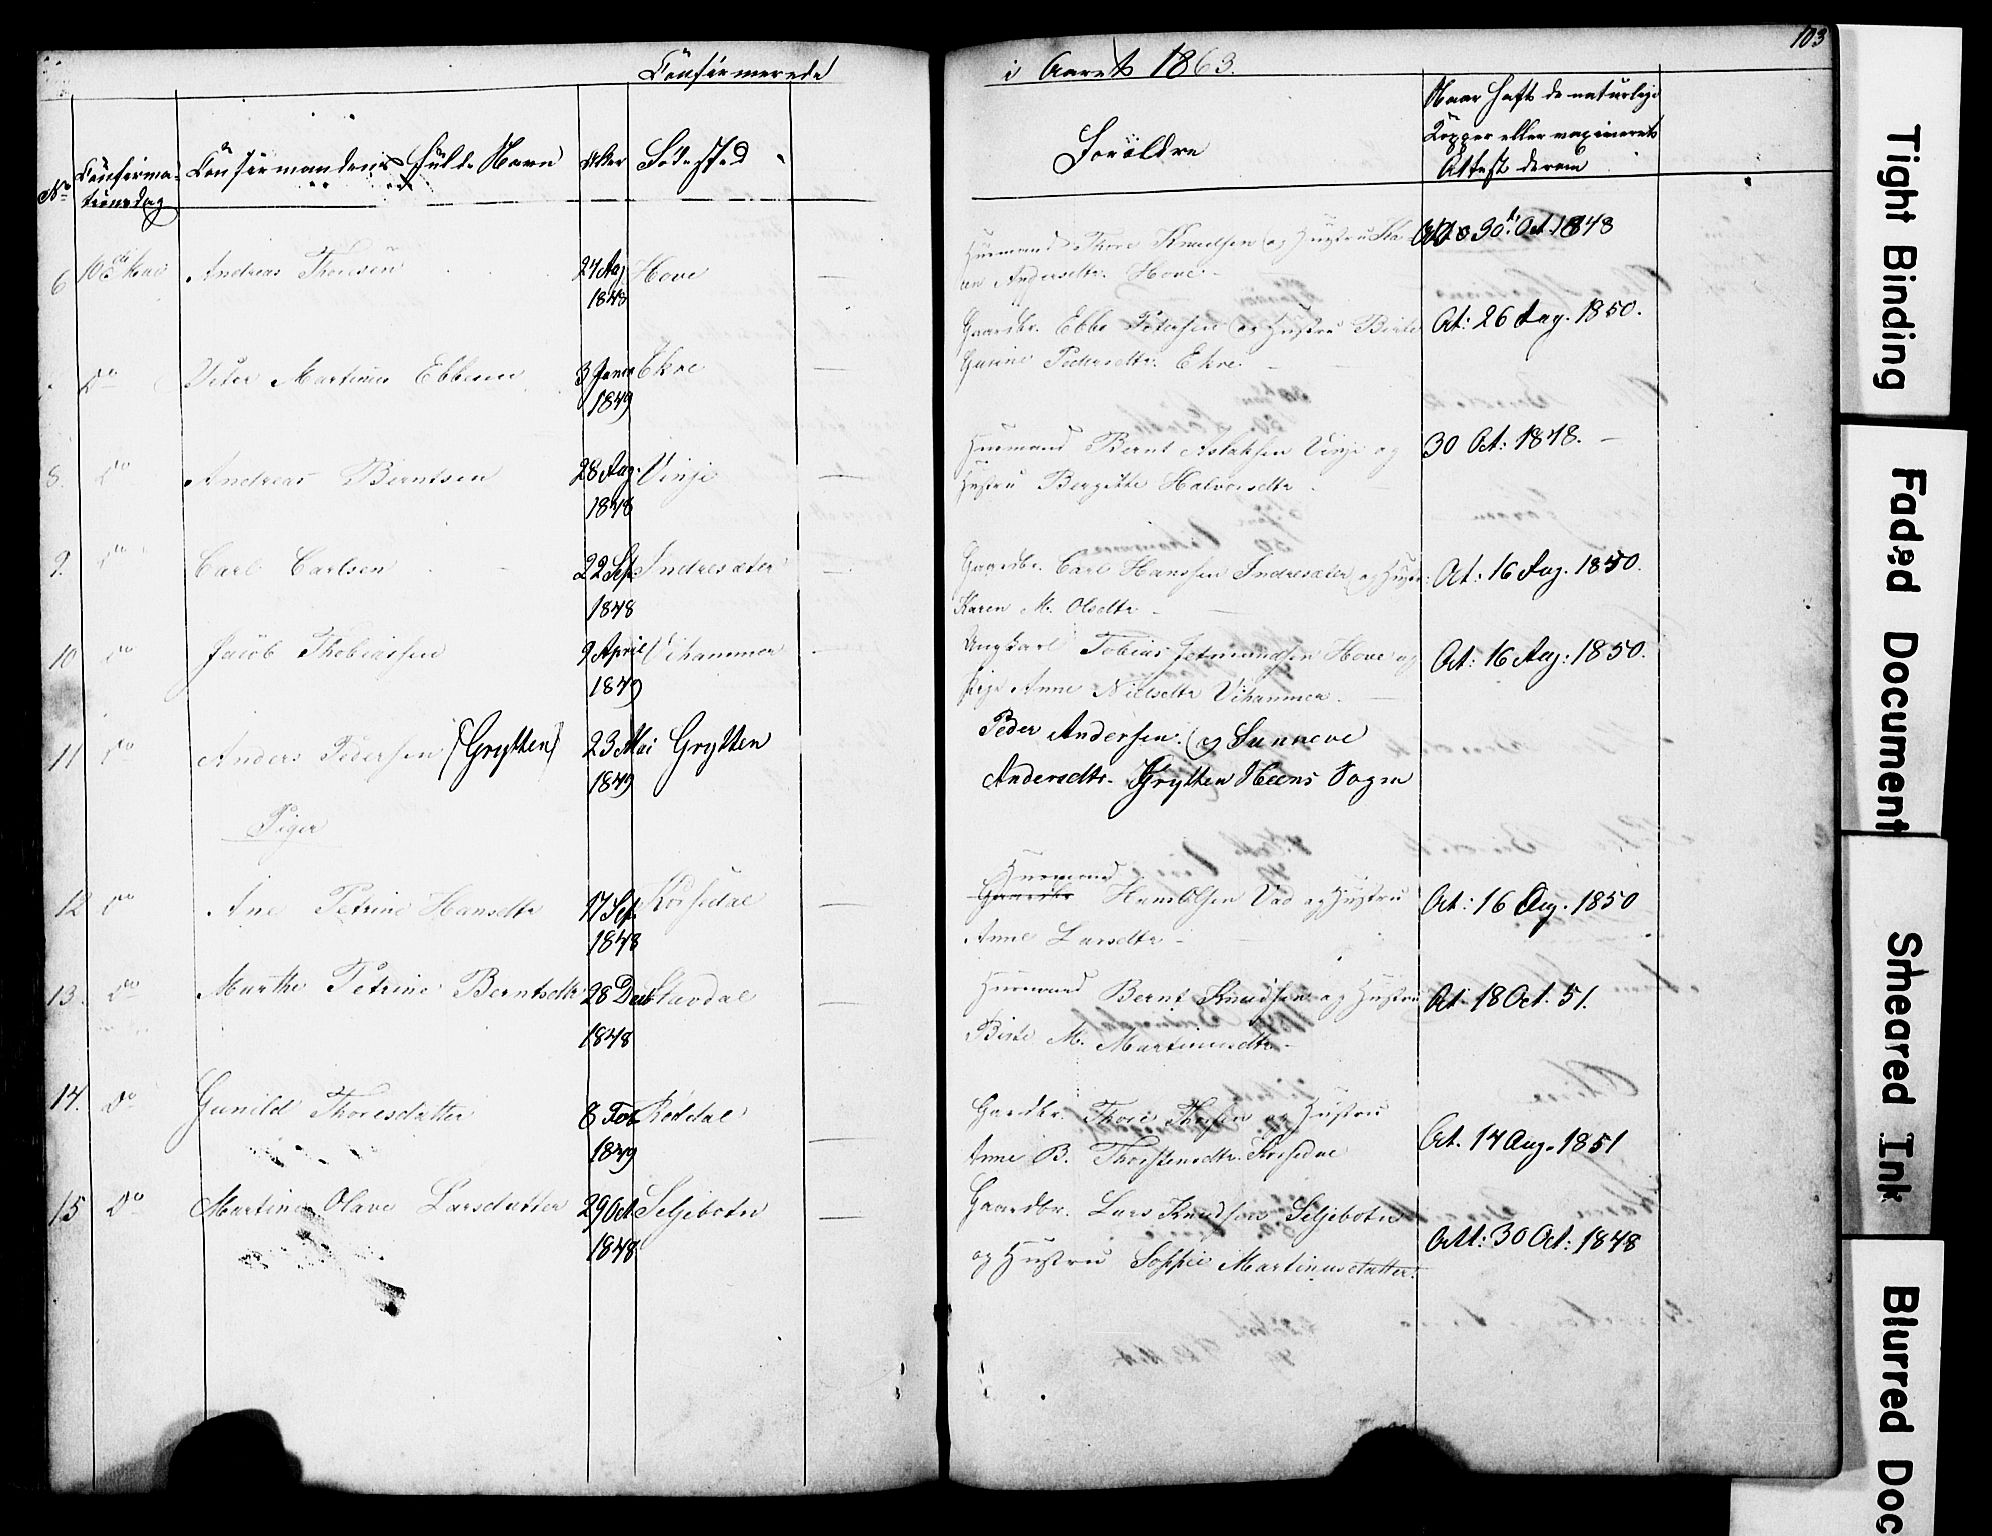 Confirmerede
i Aaret 1863.
103
No
Confirma-
tionsdag
Confirmandens fulde Navn
Alder
Födested
Forældre
Naar haft de naturlige
Kopper eller vaxineret
Attest derom
6 10de Mai Andreas Thoresen 24 Aug 1848 Hove
Huusmand Thore Knudsen og Hustru
Andersdtr. Hove.
30t Oct. 1848
Do Peter Martinus Ebbesen 3 Janr 1849 Ekre
Gaardbr. Ebbe Petersen og Hustru Birte
Gurine Pedersdtr. Ekre
At: 26 Aug. 1850.
8. Do Andreas Berntsen 28 Aug. 1848 Vinje
Huusmand Bernt Aslaksen Vinje og
Hustru Bergitte Halvorsdtr
30 Oct: 1848.
9. Do Carl Carlsen 22 Sept 1848 Indresæter
Gaardbr. Carl Hanssen Indresæter og Hustr.
Karen M. Olsdtr
At: 16 Aug. 1850.
10 Do Jacob Thobiassen 9 April 1849 Vihammer
Ungkarl Tobias Jetmundsen Hove og
Pige Anne Nielsdtr Vihammer
At: 16 Aug: 1850.
11 Do Anders Pedersen (Grytten) 23 Mai 1849 Grytten
Peder Andersen og Sunneve
Andersdtr. Grytten Heens Sogn
Piger
12 Do Ane Petrine Hansdtr 17 Sept. 1848 Korsedal
Huusmand
Gaardbr Hans Olsen Vad og Hustru
Anne Larsdtr
At: 16 Aug. 1850
13. Do Marthe Petrine Berntsdtr 28 Decb 1848 Stavdal
Huusmand Bernt Knudsen og Hustru
Birte M. Martinusdtr
At 18 Oct. 51.
14. Do Gunild Thoresdatter 8 Feb 1849 Röddal
Gaardbr. Thore Thorsen og Hustru
Anne B. Thorstensdtr. Korsedal
At. 14 Aug. 1851
15 Do Martine Olave Larsdatter 29 Oct 1848 Seljebotn
Gaardbr. Lars Knudsen Seljebotn
og Hustru Sophie Martinusdatter.
Att: 30 Oct: 1848
Tight Binding
Faded Document
Smeared Ink
Blurred Doc